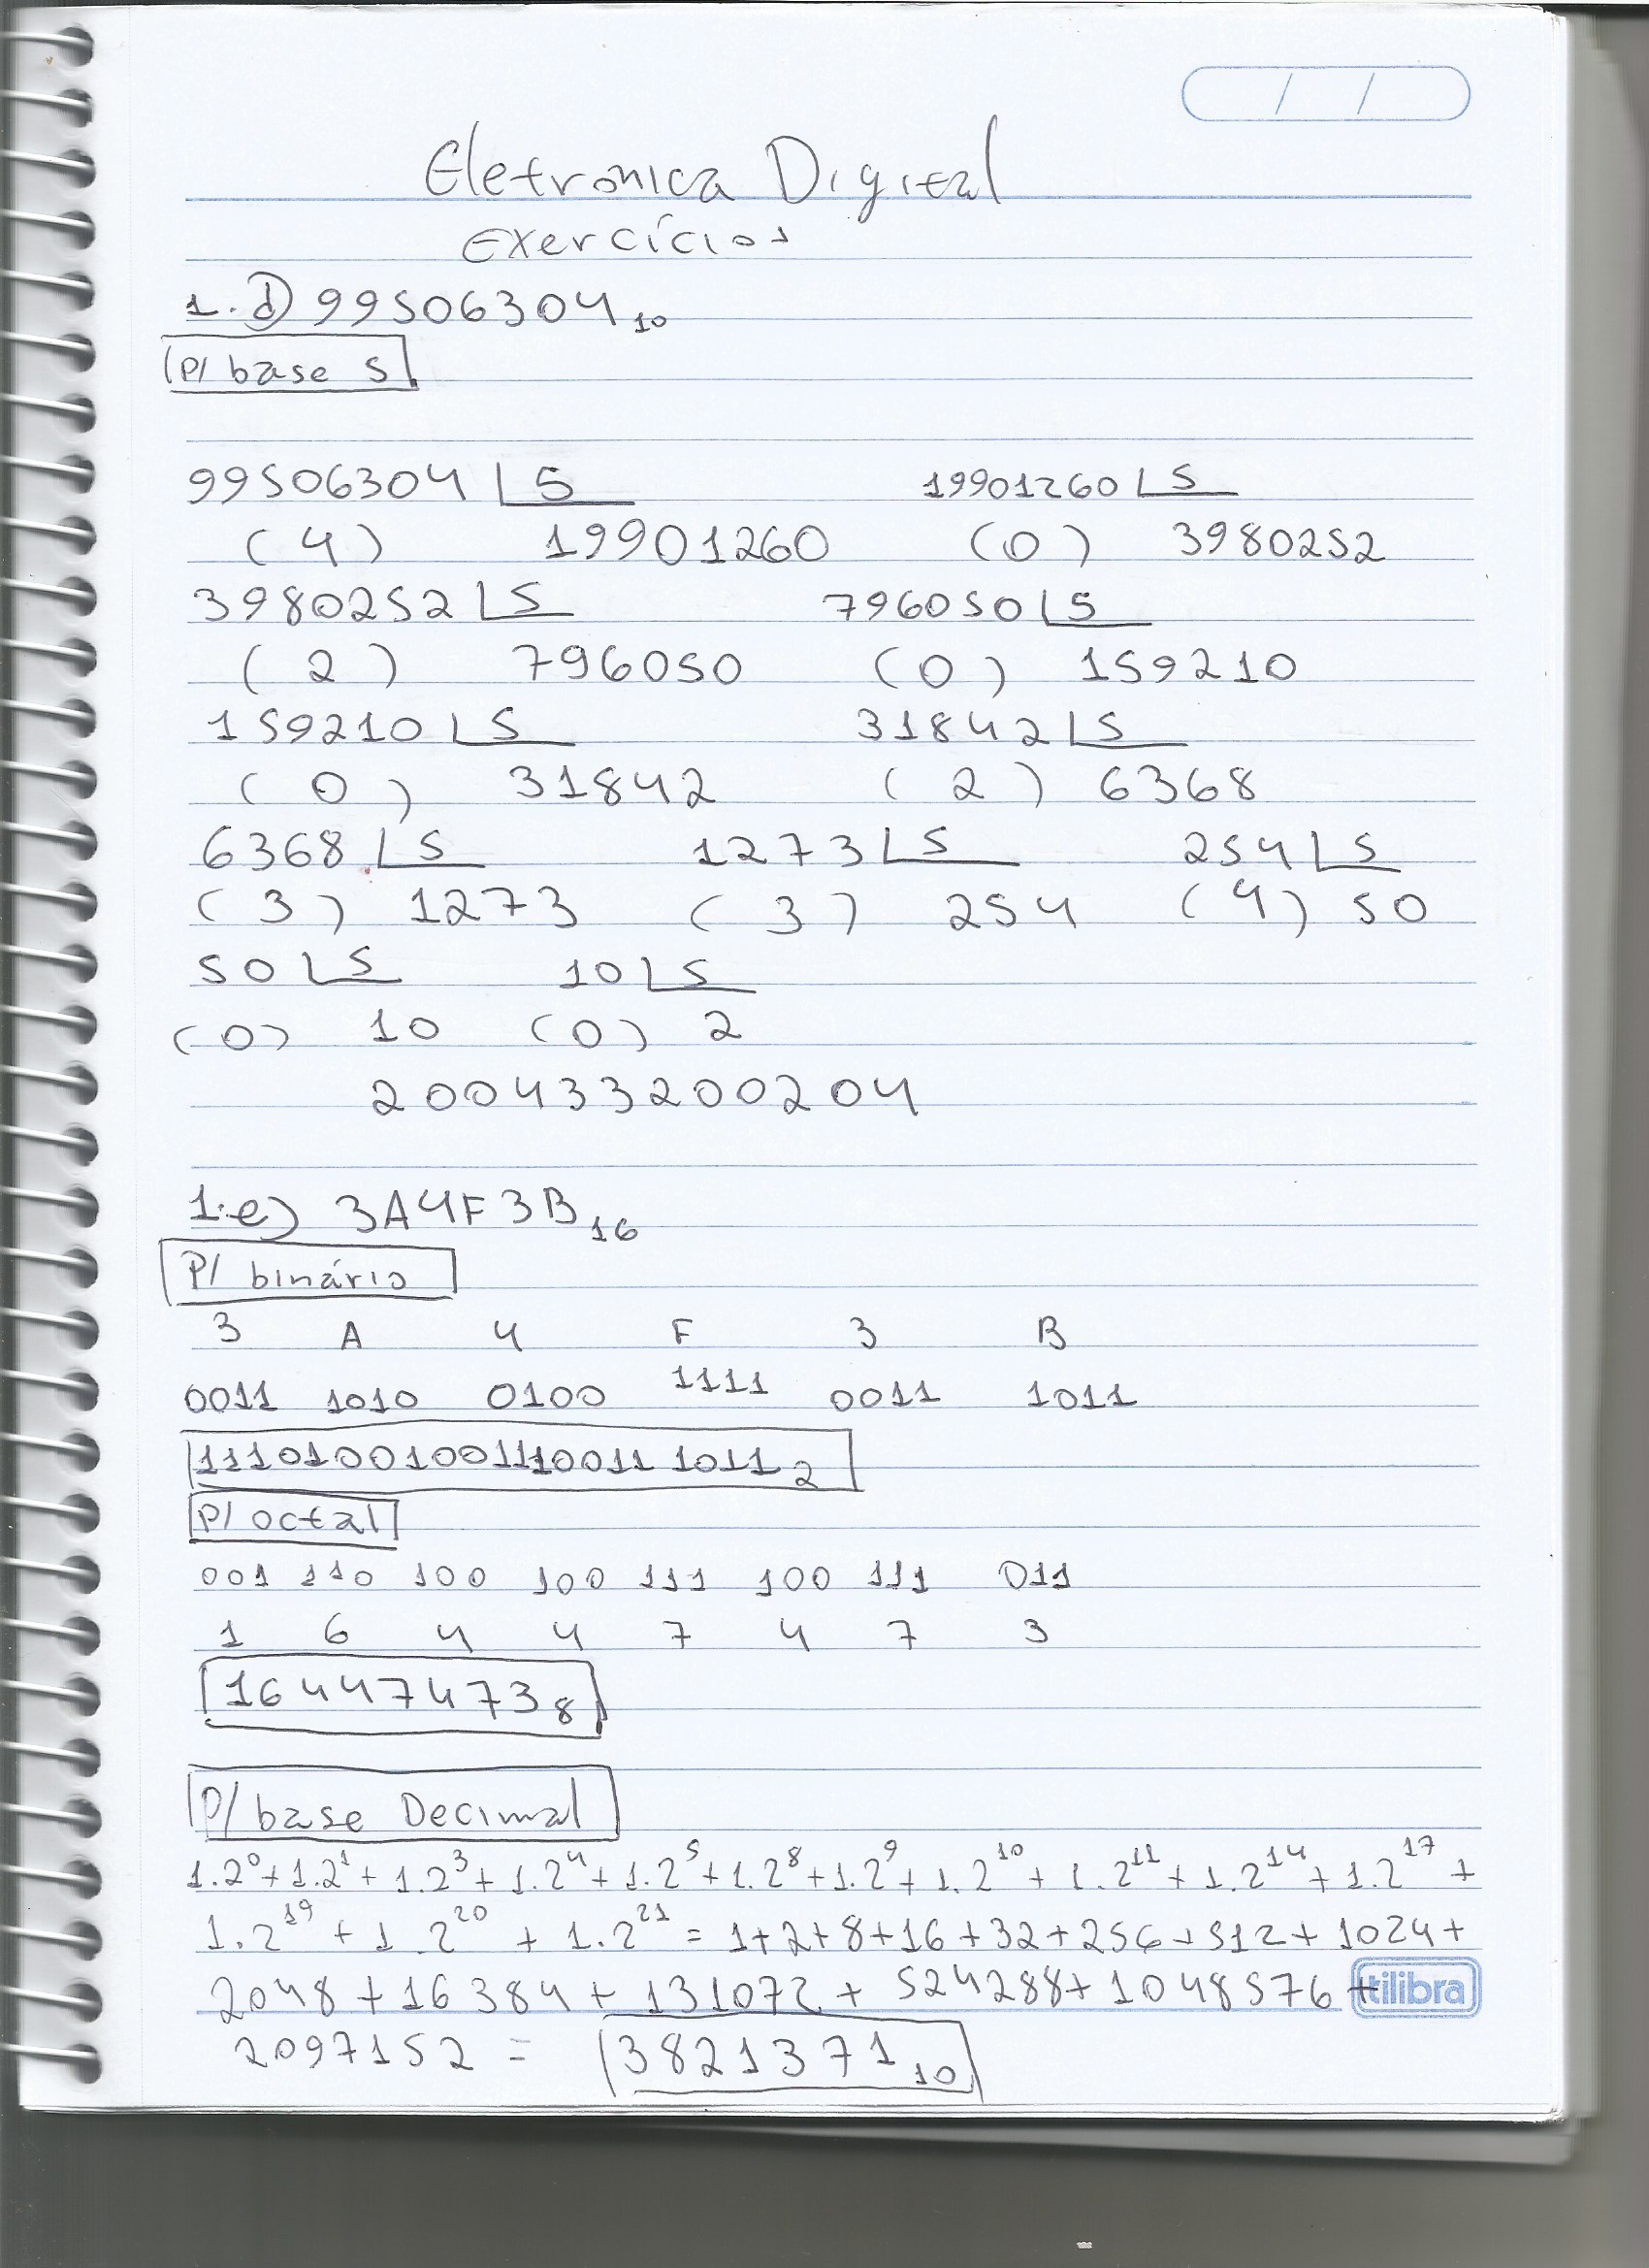 / /
Eletrônica Digital
Exercícios
1. d) 99506304₁₀
P/ base 5
99506304 | 5 19901260 | 5
(4) 19901260 (0) 3980252
3980252 | 5 796050 | 5
(2) 796050 (0) 159210
159210 | 5 31842 | 5
(0) 31842 (2) 6368
6368 | 5 1273 | 5 254 | 5
(3) 1273 (3) 254 (4) 50
50 | 5 10 | 5
(0) 10 (0) 2
200433200204
1.e) 3A4F3B₁₆
P/ binário
3 A 4 F 3 B
0011 1010 0100 1111 0011 1011
1110100100111100111011₂
P/ octal
001 110 100 100 111 100 111 011
1 6 4 4 7 4 7 3
16447473₈
P/ base Decimal
1.2⁰ + 1.2¹ + 1.2³ + 1.2⁴ + 1.2⁵ + 1.2⁸ + 1.2⁹ + 1.2¹⁰ + 1.2¹¹ + 1.2¹⁴ + 1.2¹⁷ +
1.2¹⁹ + 1.2²⁰ + 1.2²¹ = 1+2+8+16+32+256+512+1024+
2048 + 16384 + 131072 + 524288 + 1048576 +
tilibra
2097152 = 3821371₁₀